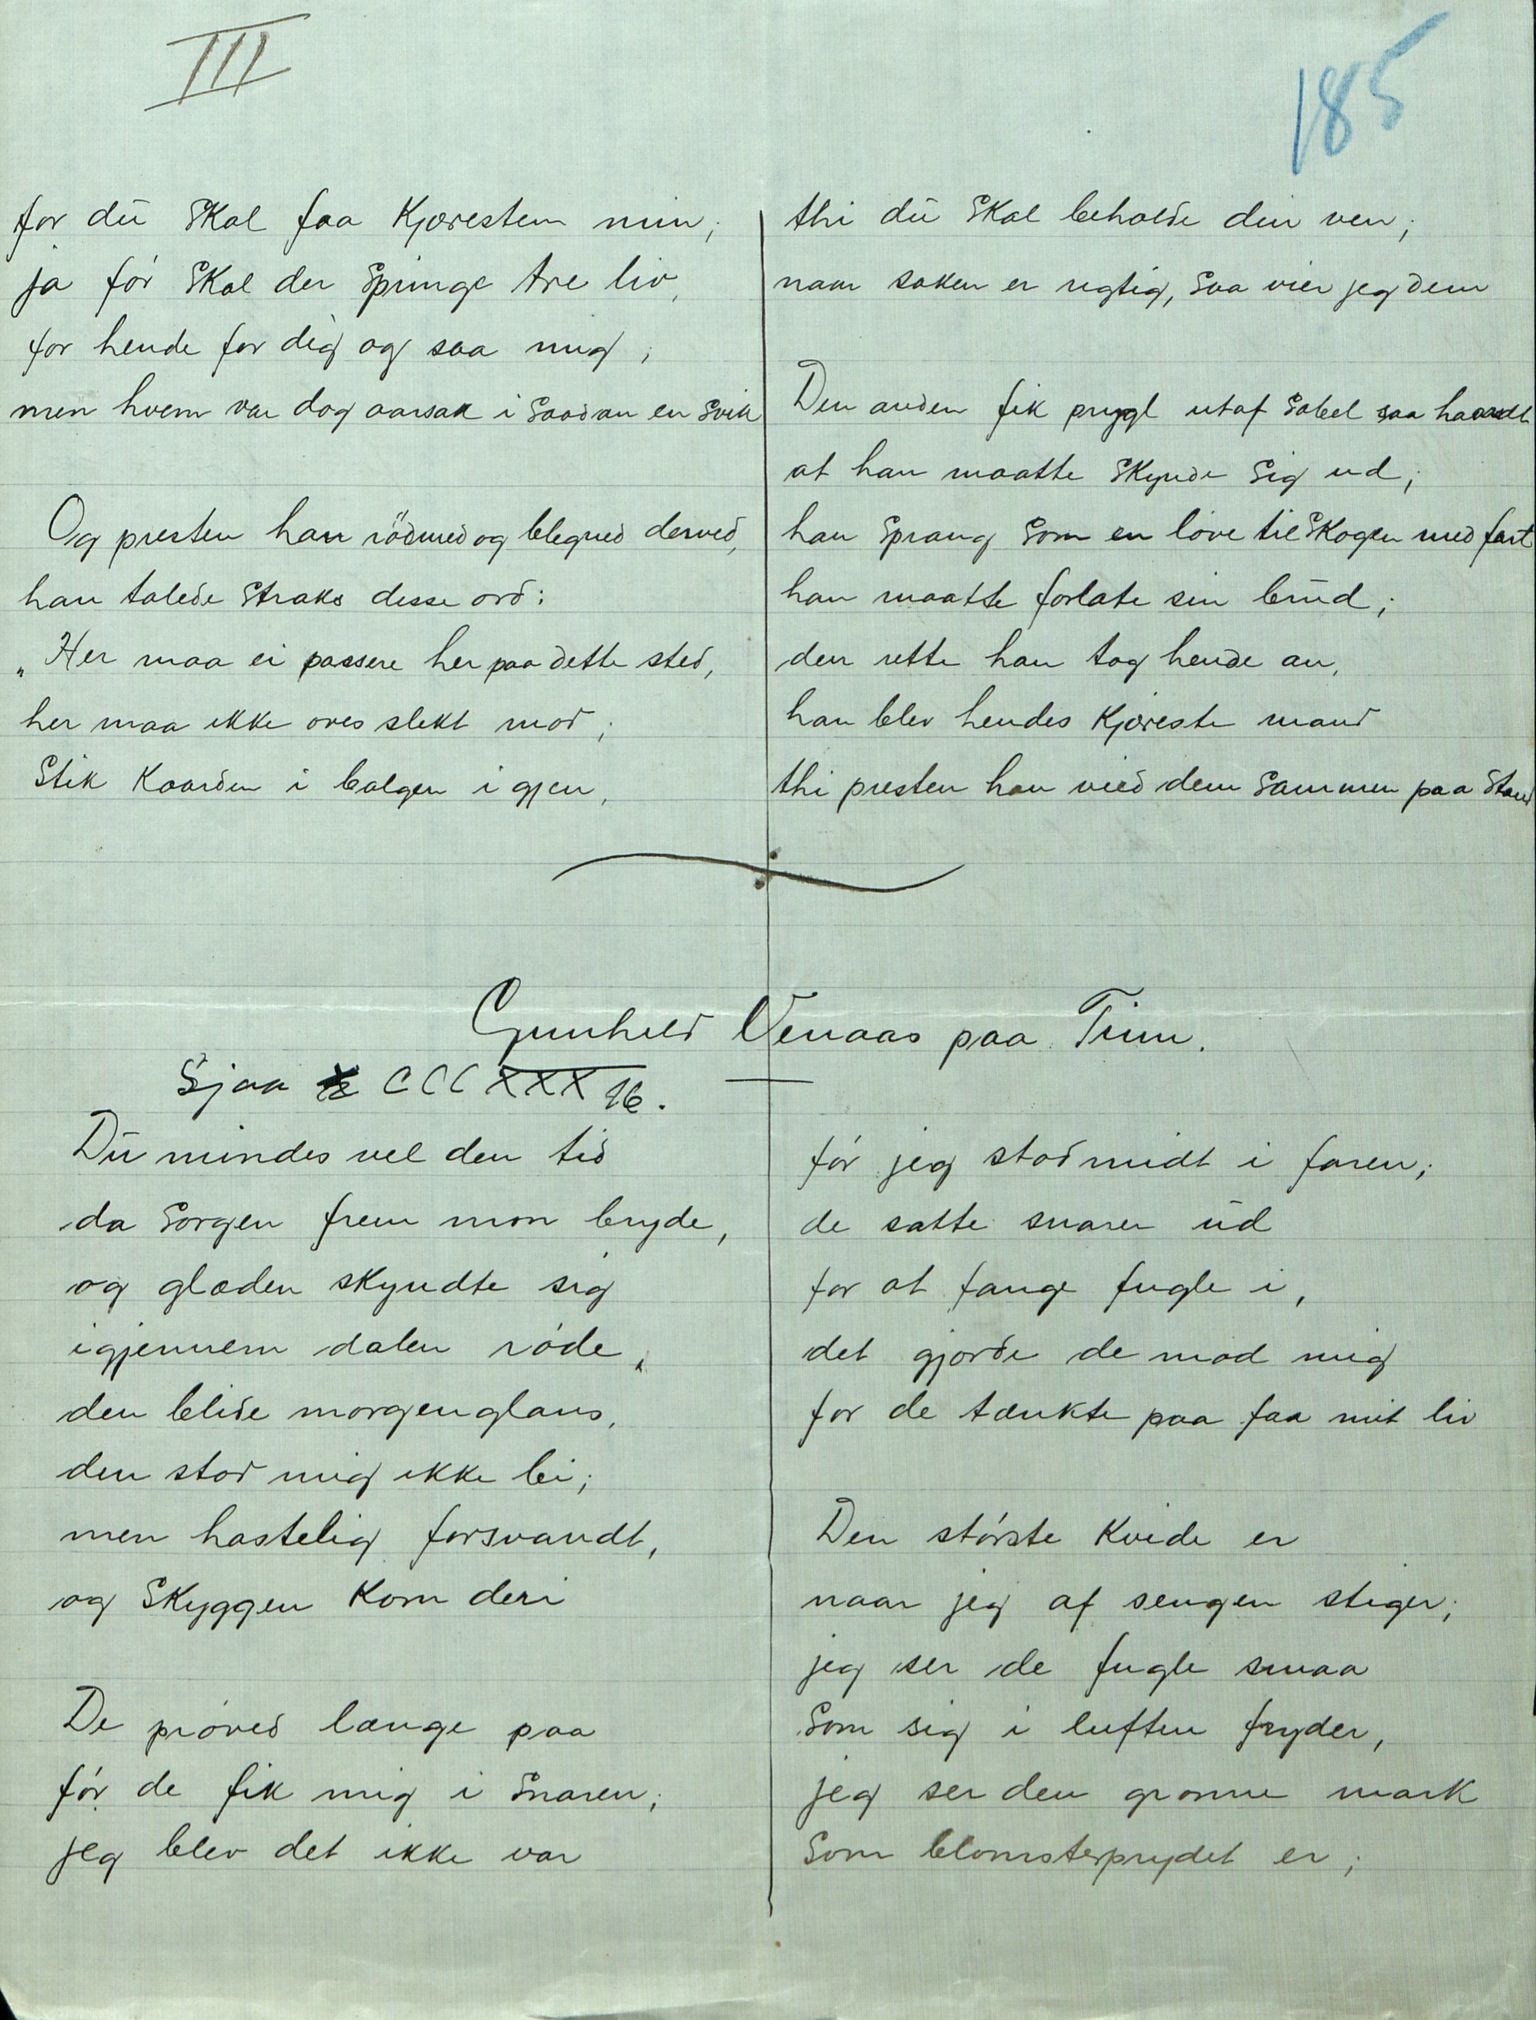 III
185
for du Skal faa Kjæresten min;
ja før Skal der Springe tre liv,
for hende for dig og saa mig;
men hvem var dog aarsak i Saadan en Svik
Og presten han rødmed og blegned derved,
han talede Straks disse ord:
„Her maa ei passere her paa dette sted,
her maa ikke øves slekt mord;
Stik Kaarden i balgen i gjen,
thi du Skal beholde din ven;
naar saken er rigtig, Saa vier jeg dem
Den anden fik prygl utaf Sabel saa haardt
at han maatte Skynde Sig ud;
han Sprang Som en løve til Skogen med fart
han maatte forlate sin brud;
den rette han tog hende an,
han blev hendes Kjæreste mand
thi presten han vied dem Sammen paa Stand
Gunhild Venaas paa Tinn.
Sjaa CCCXXX 16.
Du mindes vel den tid
da Sorgen frem mon bryde,
og glæden skyndte sig
igjennem dalen røde,
den blide morgenglans,
den stod mig ikke bi;
men hastelig forsvandt,
og Skyggen Kom deri
De prøved længe paa
før de fik mig i Snaren;
jeg blev det ikke var
før jeg stod midt i faren;
de satte snarer ud
for at fange fugle i,
det gjorde de mod mig
for de tænkte paa faa mit liv
Den største Kvide er
naar jeg af sengen stiger;
jeg ser de fugle smaa
Som sig i luften fryder,
jeg ser den grønne mark
Som blomsterprydet er;